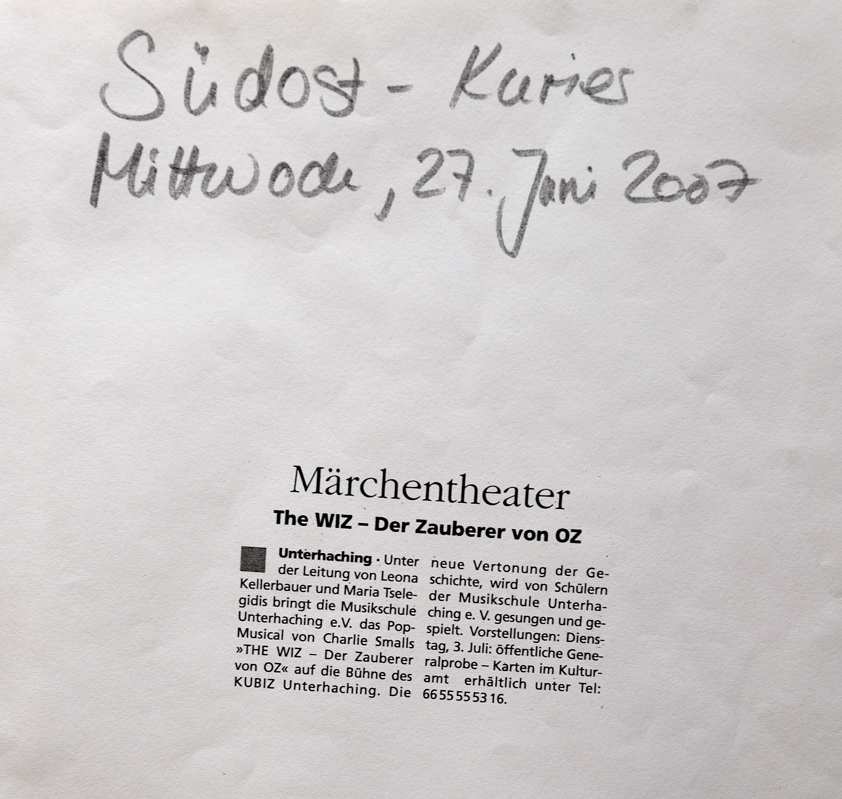 Südost - Kurier
Mittwoch, 27. Juni 2007
Märchentheater
The WIZ – Der Zauberer von OZ
Unterhaching · Unter
der Leitung von Leona
Kellerbauer und Maria Tsele-
gidis bringt die Musikschule
Unterhaching e.V. das Pop-
Musical von Charlie Smalls
»THE WIZ – Der Zauberer
von OZ« auf die Bühne des
KUBIZ Unterhaching. Die
neue Vertonung der Ge-
schichte, wird von Schülern
der Musikschule Unterha-
ching e. V. gesungen und ge-
spielt. Vorstellungen: Diens-
tag, 3. Juli: öffentliche Gene-
ralprobe – Karten im Kultur-
amt erhältlich unter Tel:
66 55 55 53 16.